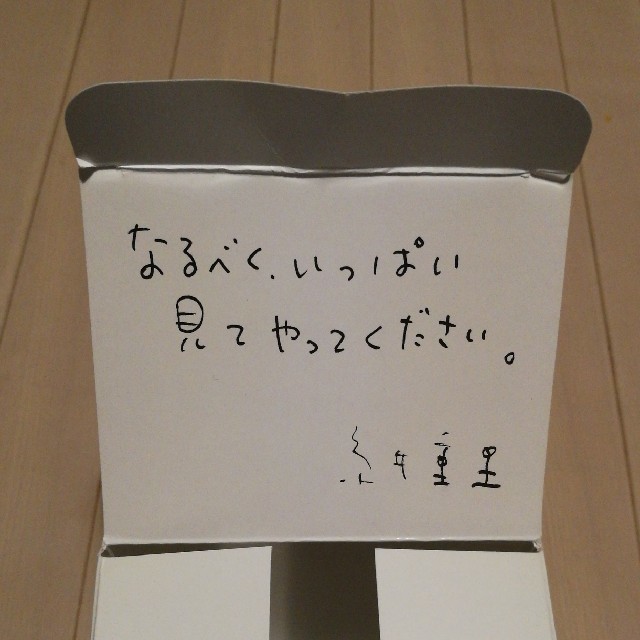 なるべく、いっぱい
見てやってください。
糸井重里